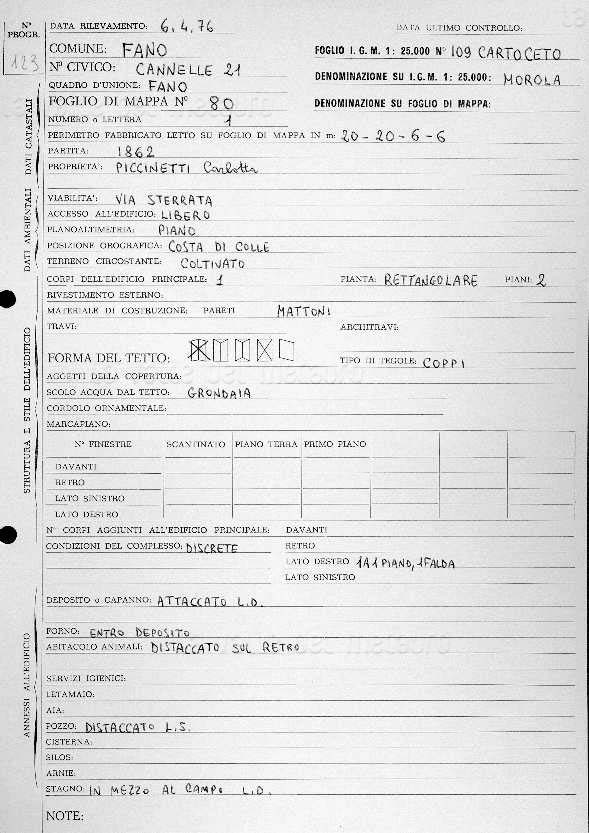 N° PROGR.
123
DATA RILEVAMENTO: 6.4.76 DATA ULTIMO CONTROLLO:
COMUNE: FANO FOGLIO I.G.M. 1: 25.000 N° 109 CARTOCETO
N° CIVICO: CANNELLE 21 DENOMINAZIONE SU I.G.M. 1: 25.000: MOROLA
QUADRO D'UNIONE: FANO
FOGLIO DI MAPPA N° 80 DENOMINAZIONE SU FOGLIO DI MAPPA:
NUMERO o LETTERA 1
PERIMETRO FABBRICATO LETTO SU FOGLIO DI MAPPA IN m: 20-20-6-6
PARTITA: 1862
PROPRIETA': PICCINETTI Carlotta
DATI CATASTALI
VIABILITA': VIA STERRATA
ACCESSO ALL'EDIFICIO: LIBERO
PLANOALTIMETRIA: PIANO
POSIZIONE OROGRAFICA: COSTA DI COLLE
TERRENO CIRCOSTANTE: COLTIVATO
DATI AMBIENTALI
CORPI DELL'EDIFICIO PRINCIPALE: 1 PIANTA: RETTANGOLARE PIANI: 2
RIVESTIMENTO ESTERNO:
MATERIALE DI COSTRUZIONE: PARETI MATTONI
TRAVI: ARCHITRAVI:
FORMA DEL TETTO: TIPO DI TEGOLE: COPPI
AGGETTI DELLA COPERTURA:
SCOLO ACQUA DAL TETTO: GRONDAIA
CORDOLO ORNAMENTALE:
MARCAPIANO:
N° FINESTRE SCANTINATO PIANO TERRA PRIMO PIANO
DAVANTI
RETRO
LATO SINISTRO
LATO DESTRO
STRUTTURA E STILE DELL'EDIFICIO
N° CORPI AGGIUNTI ALL'EDIFICIO PRINCIPALE: DAVANTI
CONDIZIONI DEL COMPLESSO: DISCRETE RETRO
LATO DESTRO 1A1 PIANO, 1 FALDA
LATO SINISTRO
DEPOSITO o CAPANNO: ATTACCATO L.D.
FORNO: ENTRO DEPOSITO
ABITACOLO ANIMALI: DISTACCATO SUL RETRO
SERVIZI IGIENICI:
LETAMAIO:
AIA:
POZZO: DISTACCATO L.S.
CISTERNA:
SILOS:
ARNIE:
STAGNO: IN MEZZO AL CAMPO L.D.
ANNESSI ALL'EDIFICIO
NOTE: